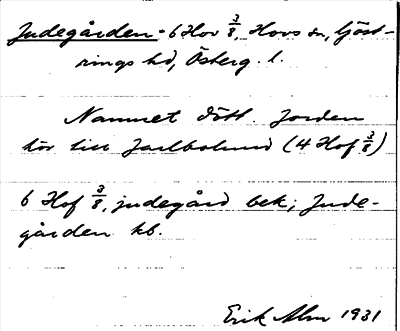 Judegården - 6 Hov 3/8, Hovs sn, Göst-
rings hd, Österg. l.
Namnet dött. Jorden
hör till Jarlbolund (4 Hof 3/8)
6 Hof 3/8, judegård bek; Jude-
gården kb.
Erik Alm 1931